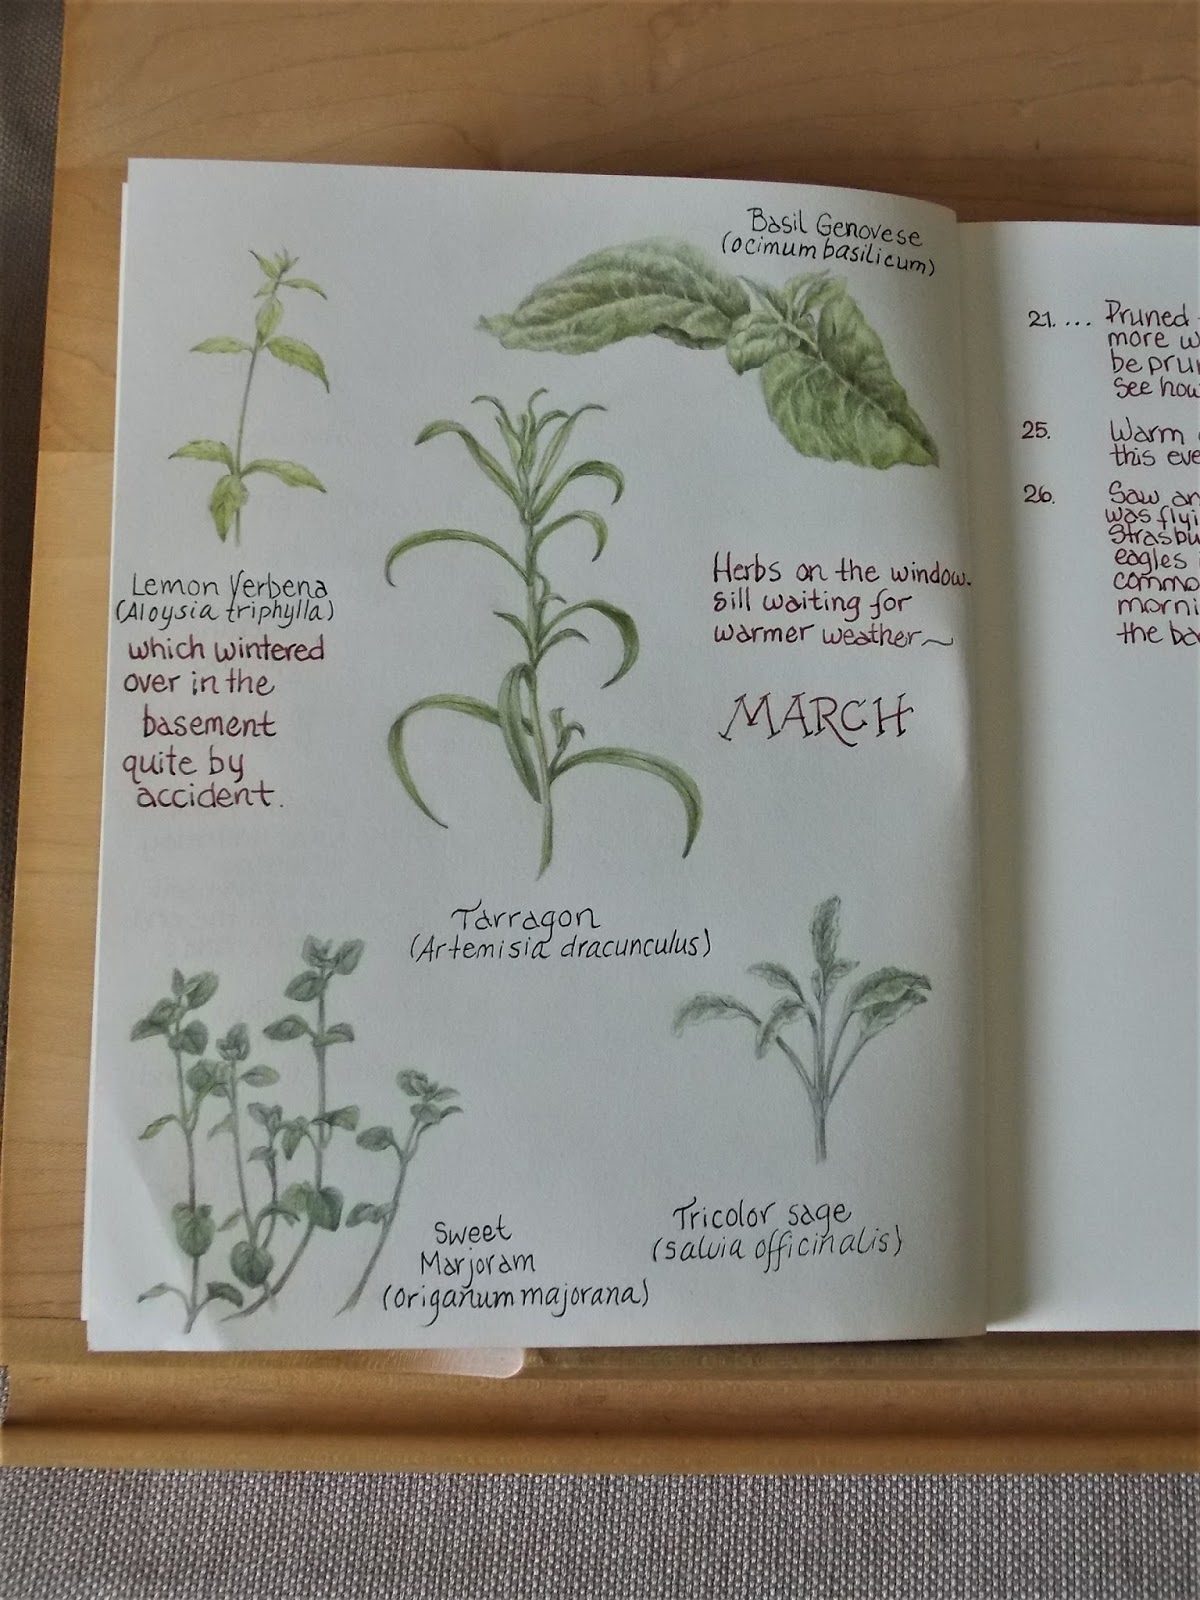 Basil Genovese
(ocimum basilicum)
Lemon Verbena
(Aloysia triphylla)
which wintered
over in the
basement
quite by
accident.
Herbs on the window.
sill waiting for
warmer weather~
MARCH
Tarragon
(Artemisia dracunculus)
Sweet
Marjoram
(origanum majorana)
Tricolor sage
(salvia officinalis)
21. ... Pruned
more w
be prun
see how
25. Warm
this eve
26. Saw an
was flyi
Strasbu
eagles
commo
morni
the ba